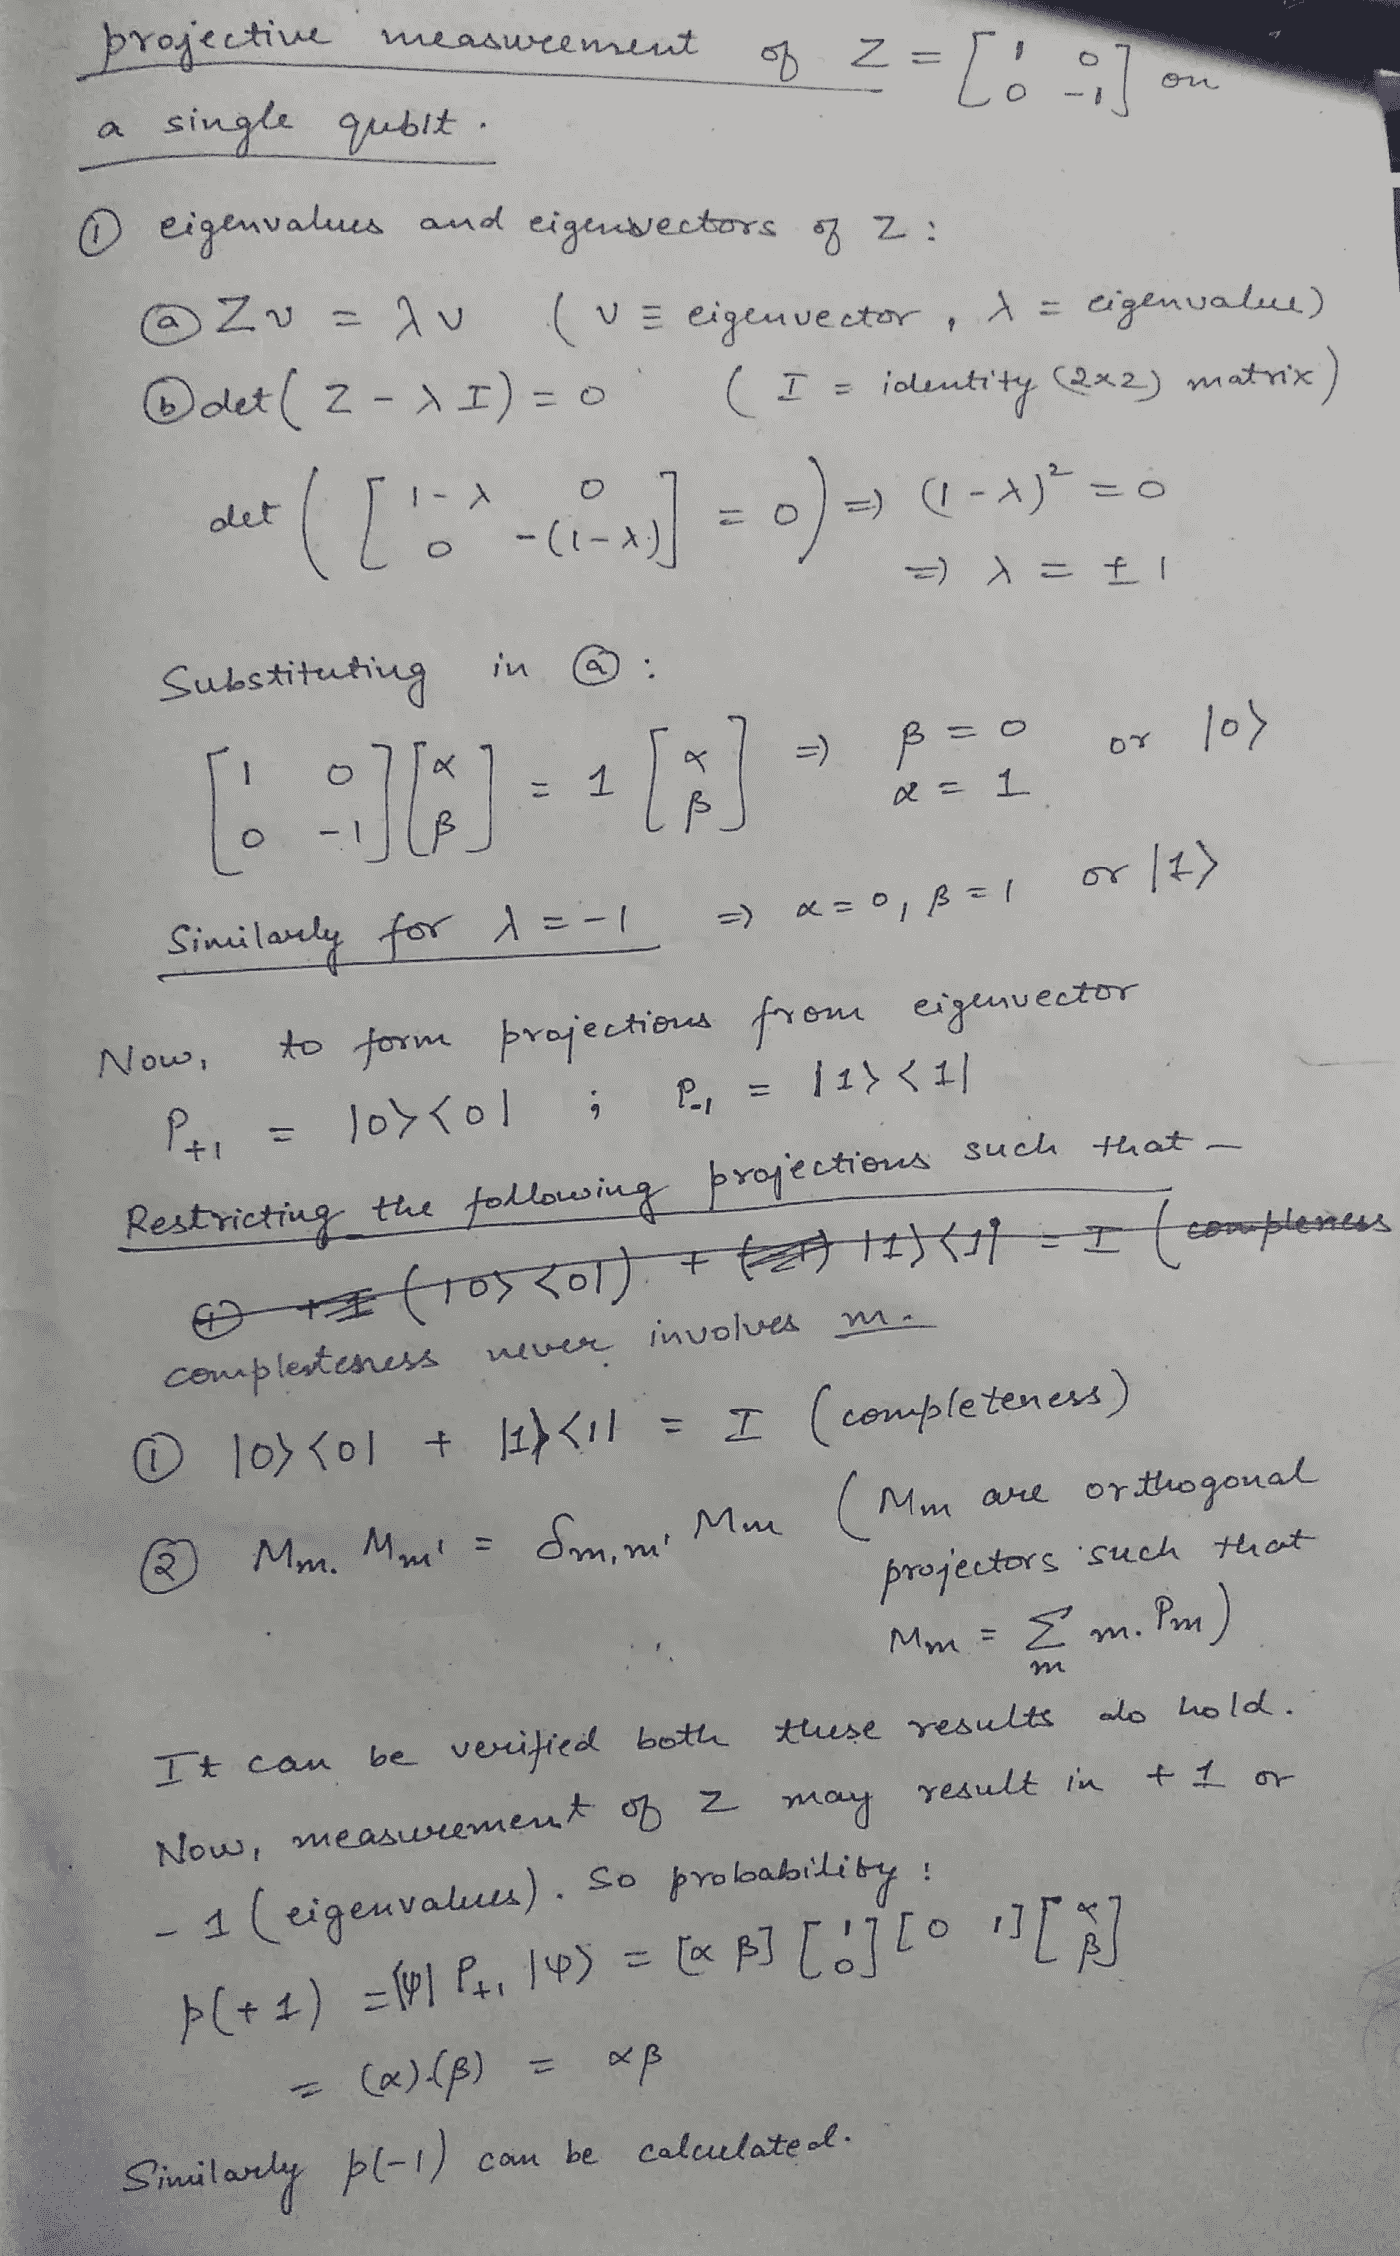 projective measurement of Z = [1 0; 0 -1] on
a single qubit.
① eigenvalues and eigenvectors of Z :
ⓐ Zv = λv ( v ≡ eigenvector , λ = eigenvalue)
ⓑ det( Z - λI) = 0 ( I = identity (2x2) matrix)
det ( [1-λ 0; 0 -(1-λ)] = 0 ) ⇒ (1-λ)² = 0
⇒ λ = ±1
Substituting in ⓐ :
[1 0; 0 -1] [α; β] = 1 [α; β] ⇒ β = 0 α = 1 or |0⟩
Similarly for λ = -1 ⇒ α = 0, β = 1 or |1⟩
Now, to form projections from eigenvector
P+1 = |0⟩⟨0| ; P-1 = |1⟩⟨1|
Restricting the following projections such that —
① +1 (|0⟩⟨0|) + (-1) |1⟩⟨1| = I (compleness
completeness never involves m.
① |0⟩⟨0| + |1⟩⟨1| = I (completeness)
② Mm. Mm' = δm,m' Mm ( Mm are orthogonal
projectors such that
Mm = Σm m. Pm)
It can be verified both these results do hold.
Now, measurement of Z may result in +1 or
-1 (eigenvalues). So probability :
p(+1) = ⟨ψ| P+1 |ψ⟩ = [α β] [1; 0] [0 1] [α; β]
= (α).(β) = αβ
Similarly p(-1) can be calculated.